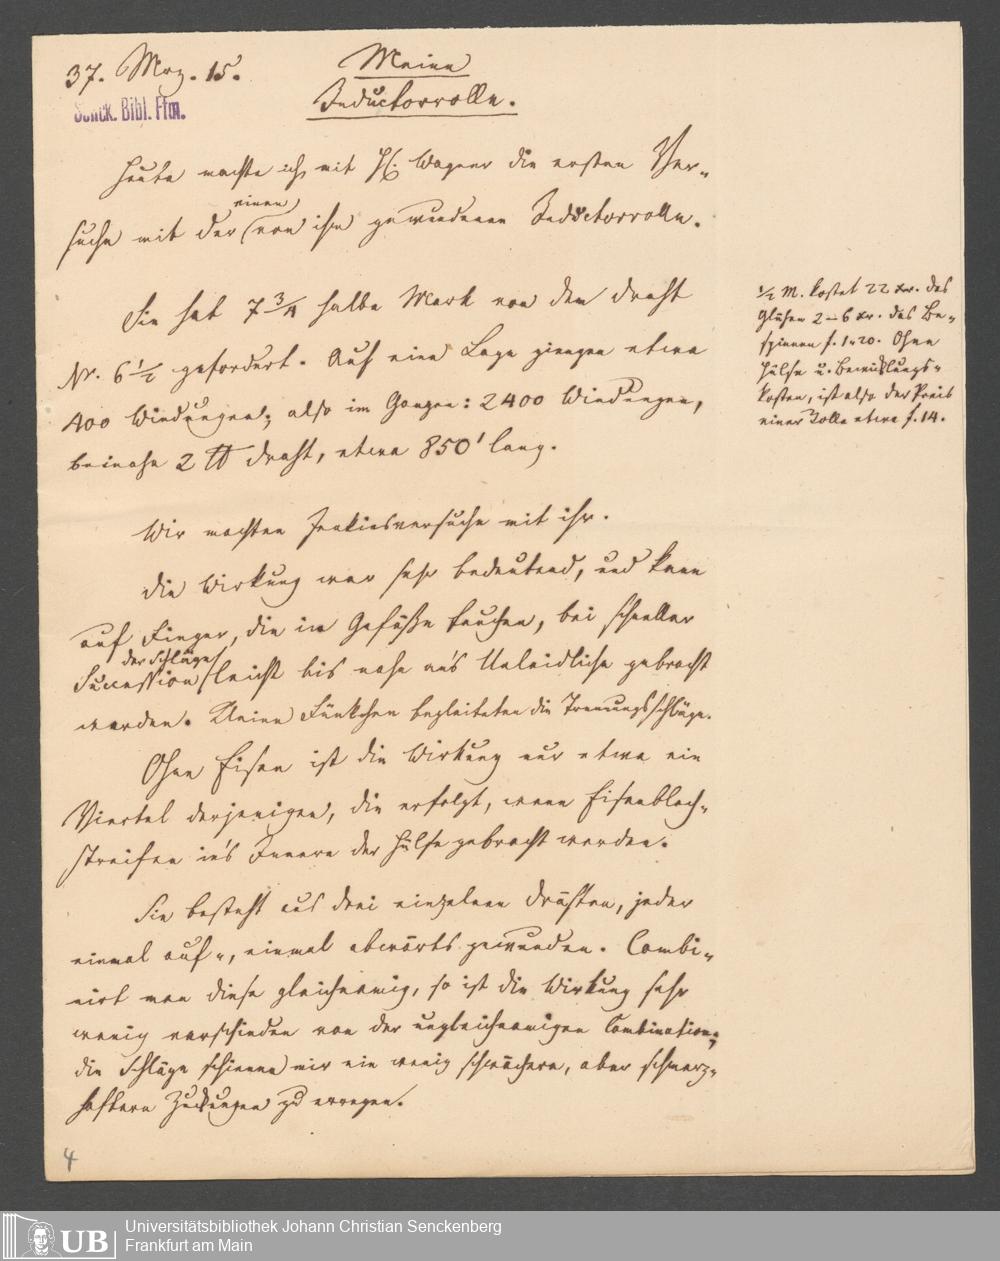 37. Mrz. 15.
Meine
Inductorrolle.
Senck. Bibl. Ffm.
Heute machte ich mit H. Wagner die ersten Ver-
suche mit der einen von ihm gewundenen Inductorrolle.
Sie hat 7 3/4 halbe Mark von dem Draht
Nr. 6 1/2 gefordert. Auf eine Lage giengen etwa
400 Windungen; also im Ganzen: 2400 Windungen,
beinahe 2 ℔ Draht, etwa 850' lang.
1/2 M. kostet 22 xr. das
Glühen 2–6 xr. das Be-
spinnen f. 1"20. Ohne
Hülse u. Bewicklungs-
kosten, ist also der Preis
einer Rolle etwa f. 14.
Wir machten Jenkinsversuche mit ihr.
Die Wirkung war sehr bedeutend, und kann
auf Finger, die in Gefäße tauchen, bei schneller
Succession der Schläge leicht bis nahe an's Unleidliche gebracht
werden. Kleine Fünkchen begleiteten die Trennungsschläge.
Ohne Eisen ist die Wirkung nur etwa ein
Viertel derjenigen, die erfolgt, wenn Eisenblech-
streifen in's Innere der Hülse gebracht werden.
Sie besteht aus drei einzelnen Drähten, jeder
einmal auf-, einmal abwärts gewunden. Combi-
nirt man diese gleichnamig, so ist die Wirkung sehr
wenig verschieden von der ungleichnamigen Combination;
die Schläge schienen mir ein wenig schwächere, aber schmerz-
haftere Zuckungen zu erregen.
4
UB
Universitätsbibliothek Johann Christian Senckenberg
Frankfurt am Main